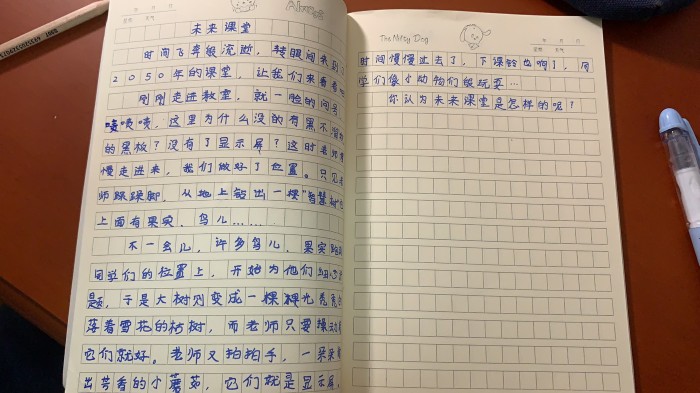 未来课堂
时间飞奔般流逝，转眼间来到了
2050年的课堂，让我们来看看吧
刚刚走进教室，就一脸的问号
啧啧啧，这里为什么没的有黑不溜
的黑板？没有了显示屏？这时老师慢
慢走进来，我们做好了位置。只见老
师跺跺脚，从地上钻出一棵"智慧树"
上面有果实、鸟儿……
不一会儿，许多鸟儿、果实
同学们的位置上，开始为他们
题，于是大树则变成一棵棵光秃秃
落着雪花的枯树，而老师只要操
它们就好。老师又拍拍手，一朵朵
出芳香的小蘑菇，它们就是显示屏，
The Milky Dog
年 月 日
星期 天气
时间慢慢过去了，下课铃也响了，同
学们像小动物们般玩耍…
你认为未来课堂是怎样的呢？